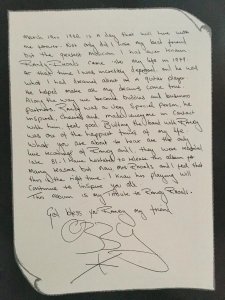 March 19th 1982 is a day that will live with
me forever. Not only did I lose my best friend
but the greatest musician I had ever known.
Randy Rhoads came into my life in 1979.
At that time I was incredibly depressed. He was
what I had dreamed about in a guitar player.
He helped make all my dreams come true.
Along the way we became buddies and business
partners. Randy was a very special person, he
inspired, cheered and made everyone in contact
with him feel good. Building the band with Randy
was one of the happiest times of my life.
What you are about to hear are the only
live recordings of Randy and they were recorded
late 81. I have hesitated to release this album for
many reasons but now Mrs Rhoads and I feel that
this is the right time. I know his playing will
continue to inspire you all.
This album is my tribute to Randy Rhoads.
God bless ya Randy my friend
Ozzy